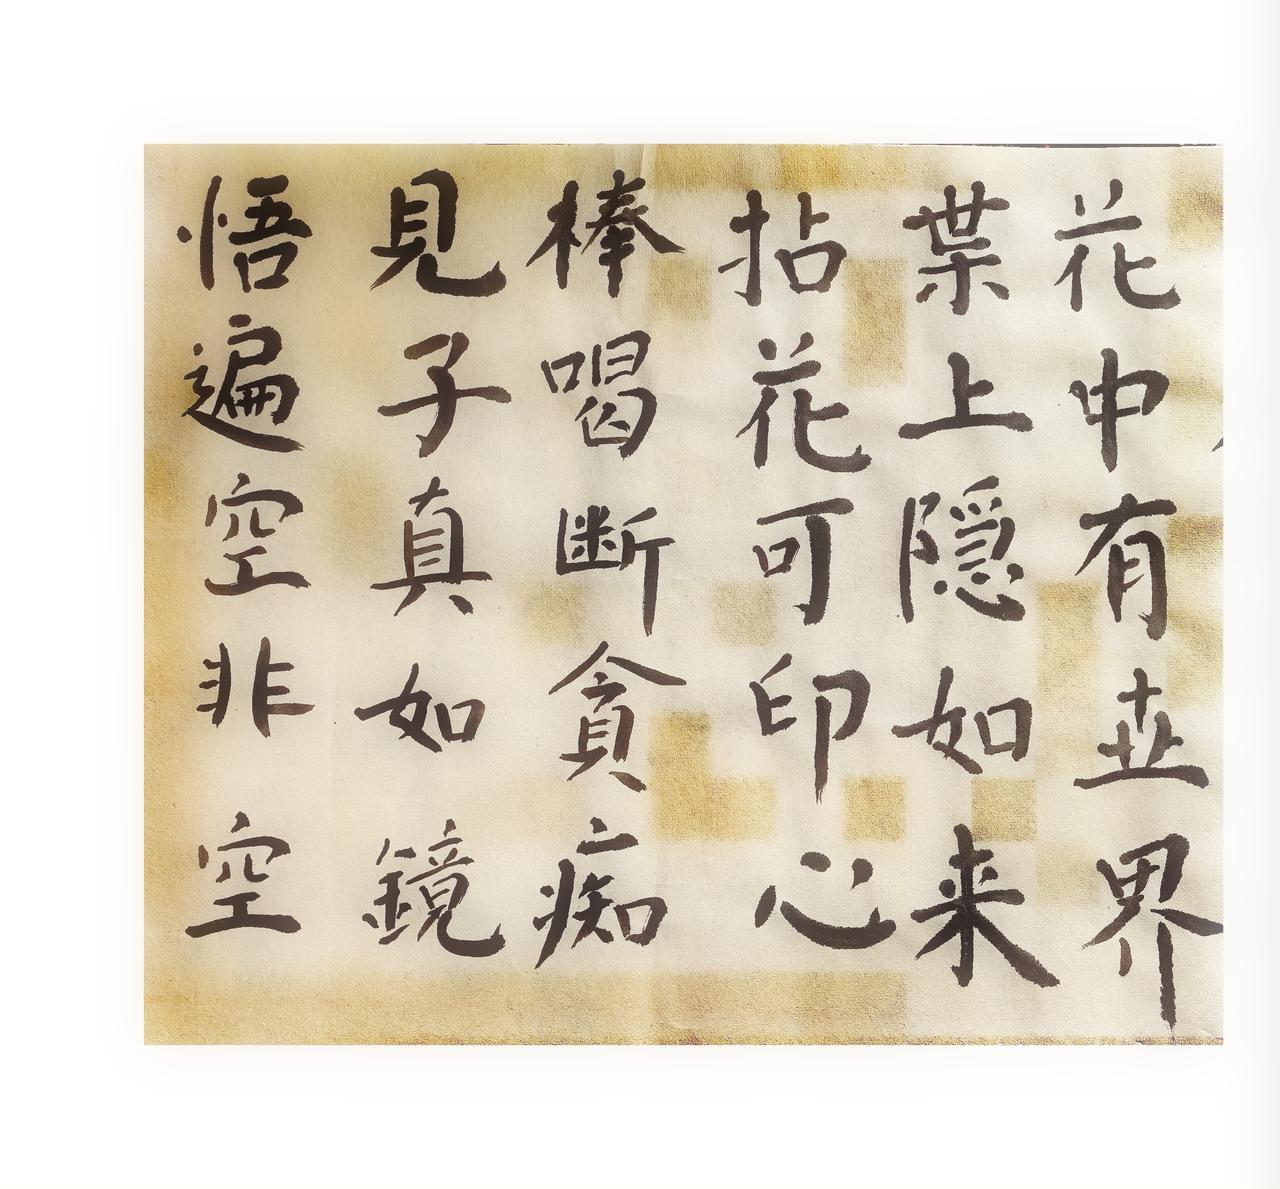 花中有世界
葉上隱如来
拈花可印心
棒喝断貪痴
見子真如鏡
悟遍空非空